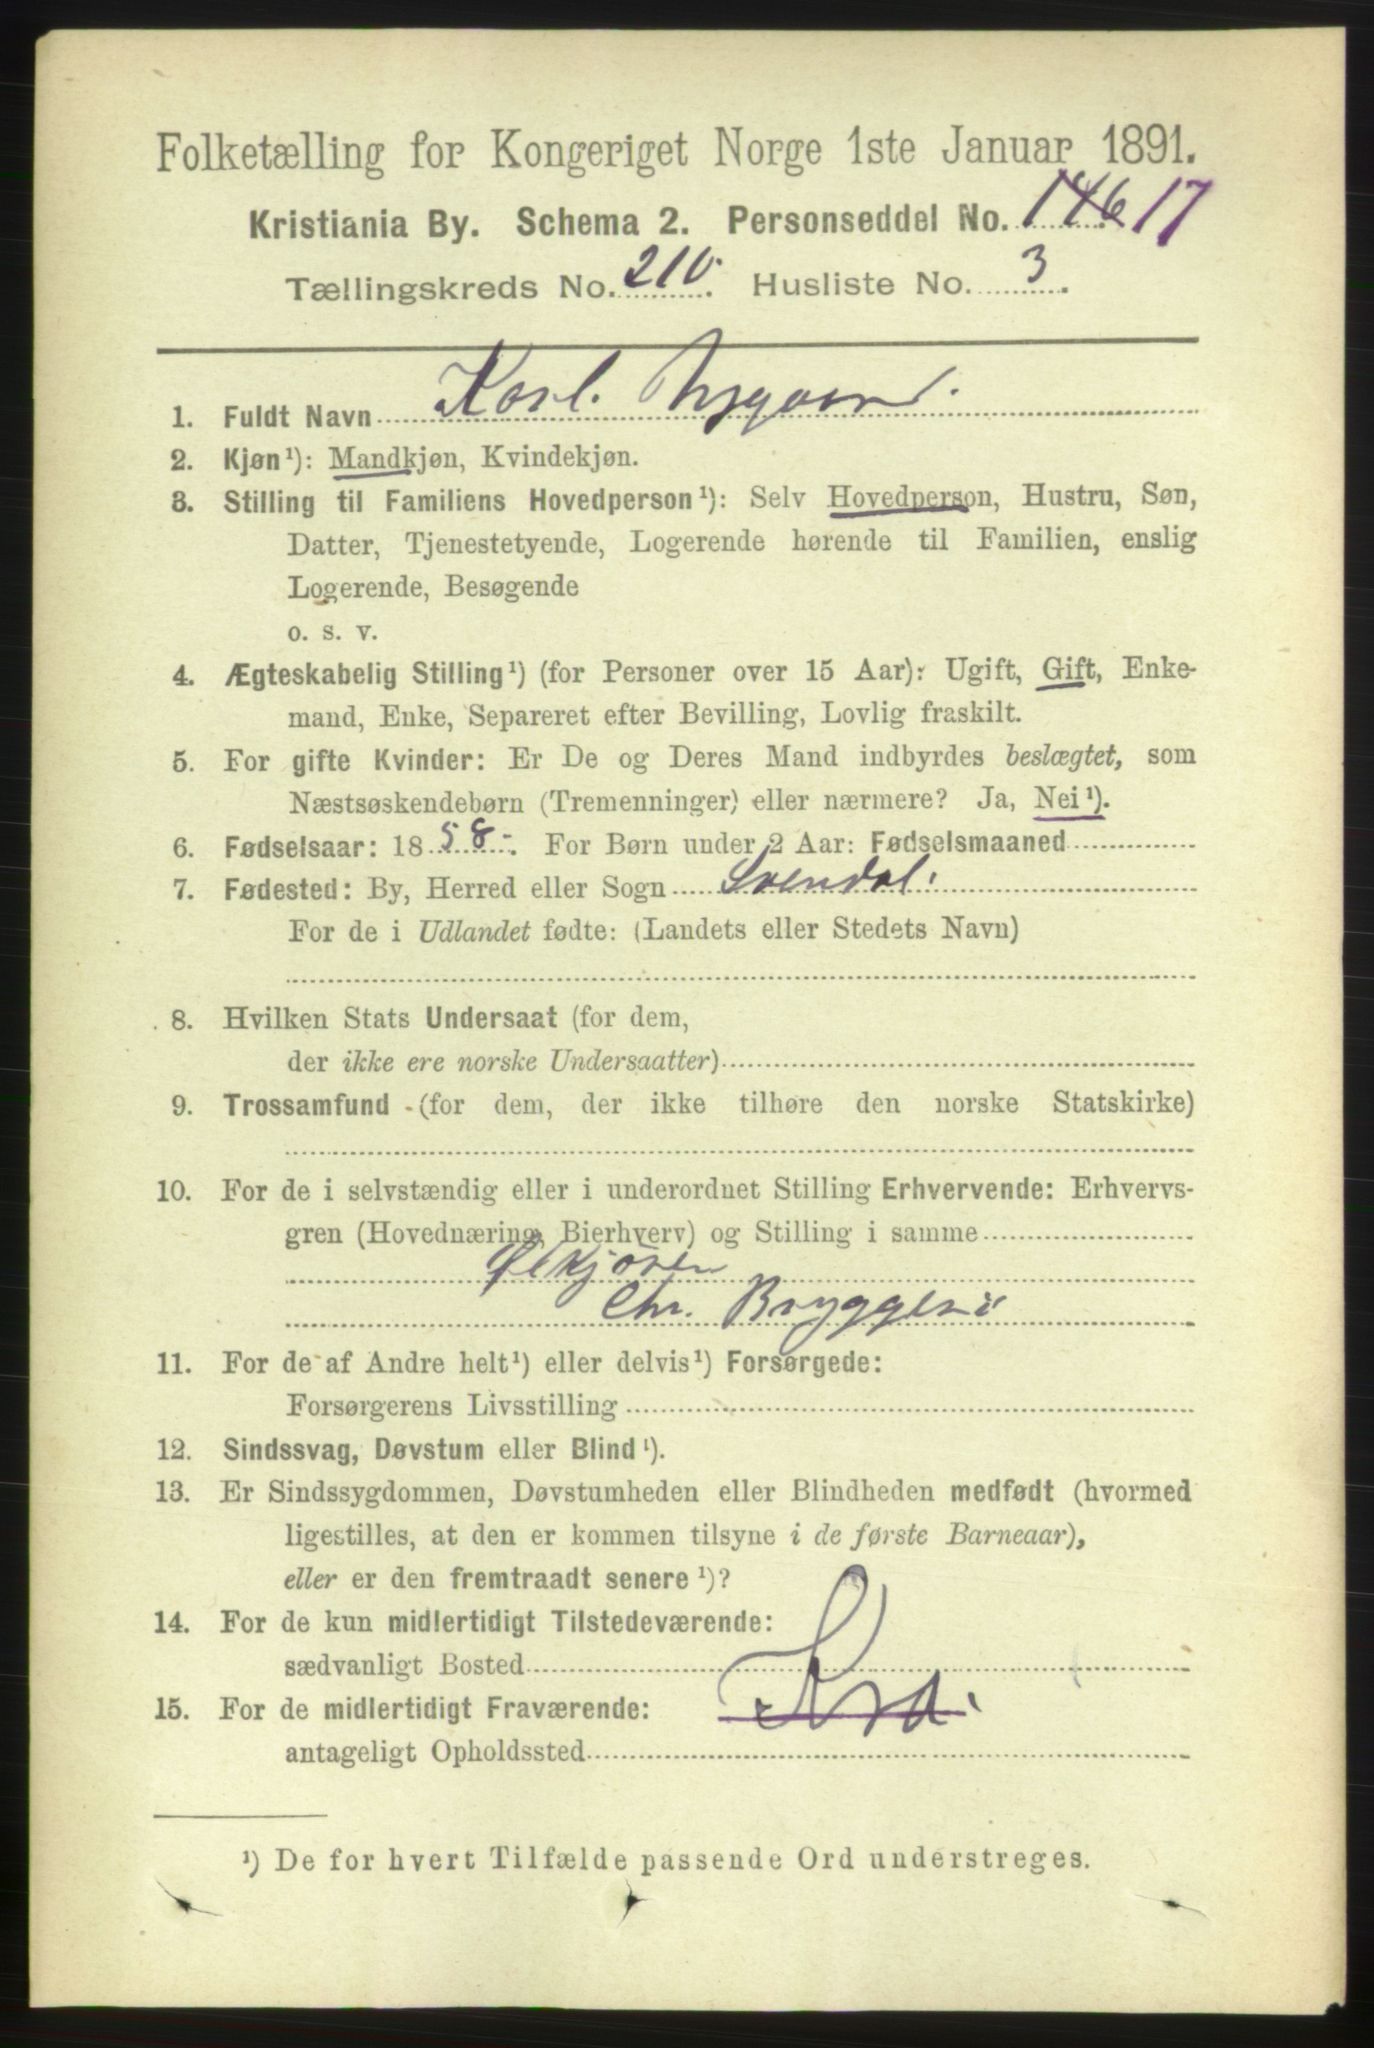 Folketælling for Kongeriget Norge 1ste Januar 1891.
Kristiania By. Schema 2. Personseddel No. 146 17
Tællingskreds No. 210. Husliste No. 3.
1. Fuldt Navn Karl. Nygaard.
2. Kjøn¹): Mandkjøn, Kvindekjøn.
3. Stilling til Familiens Hovedperson¹): Selv Hovedperson, Hustru, Søn,
Datter, Tjenestetyende, Logerende hørende til Familien, enslig
Logerende, Besøgende
o. s. v.
4. Ægteskabelig Stilling¹) (for Personer over 15 Aar): Ugift, Gift, Enke-
mand, Enke, Separeret efter Bevilling, Lovlig fraskilt.
5. For gifte Kvinder: Er De og Deres Mand indbyrdes beslægtet, som
Næstsøskendebørn (Tremenninger) eller nærmere? Ja, Nei¹).
6. Fødselsaar: 1858. For Børn under 2 Aar: Fødselsmaaned
7. Fødested: By, Herred eller Sogn
For de i Udlandet fødte: (Landets eller Stedets Navn)
8. Hvilken Stats Undersaat (for dem,
der ikke ere norske Undersaatter)
9. Trossamfund (for dem, der ikke tilhøre den norske Statskirke)
10. For de i selvstændig eller i underordnet Stilling Erhvervende: Erhvervs-
gren (Hovednæring, Bierhverv) og Stilling i samme
Ølkjører
Chr. Bryggeri
11. For de af Andre helt¹) eller delvis¹) Forsørgede:
Forsørgerens Livsstilling
12. Sindssvag, Døvstum eller Blind¹).
13. Er Sindssygdommen, Døvstumheden eller Blindheden medfødt (hvormed
ligestilles, at den er kommen tilsyne i de første Barneaar),
eller er den fremtraadt senere¹)?
14. For de kun midlertidigt Tilstedeværende:
sædvanligt Bosted
15. For de midlertidigt Fraværende: Kra.
antageligt Opholdssted
¹) De for hvert Tilfælde passende Ord understreges.